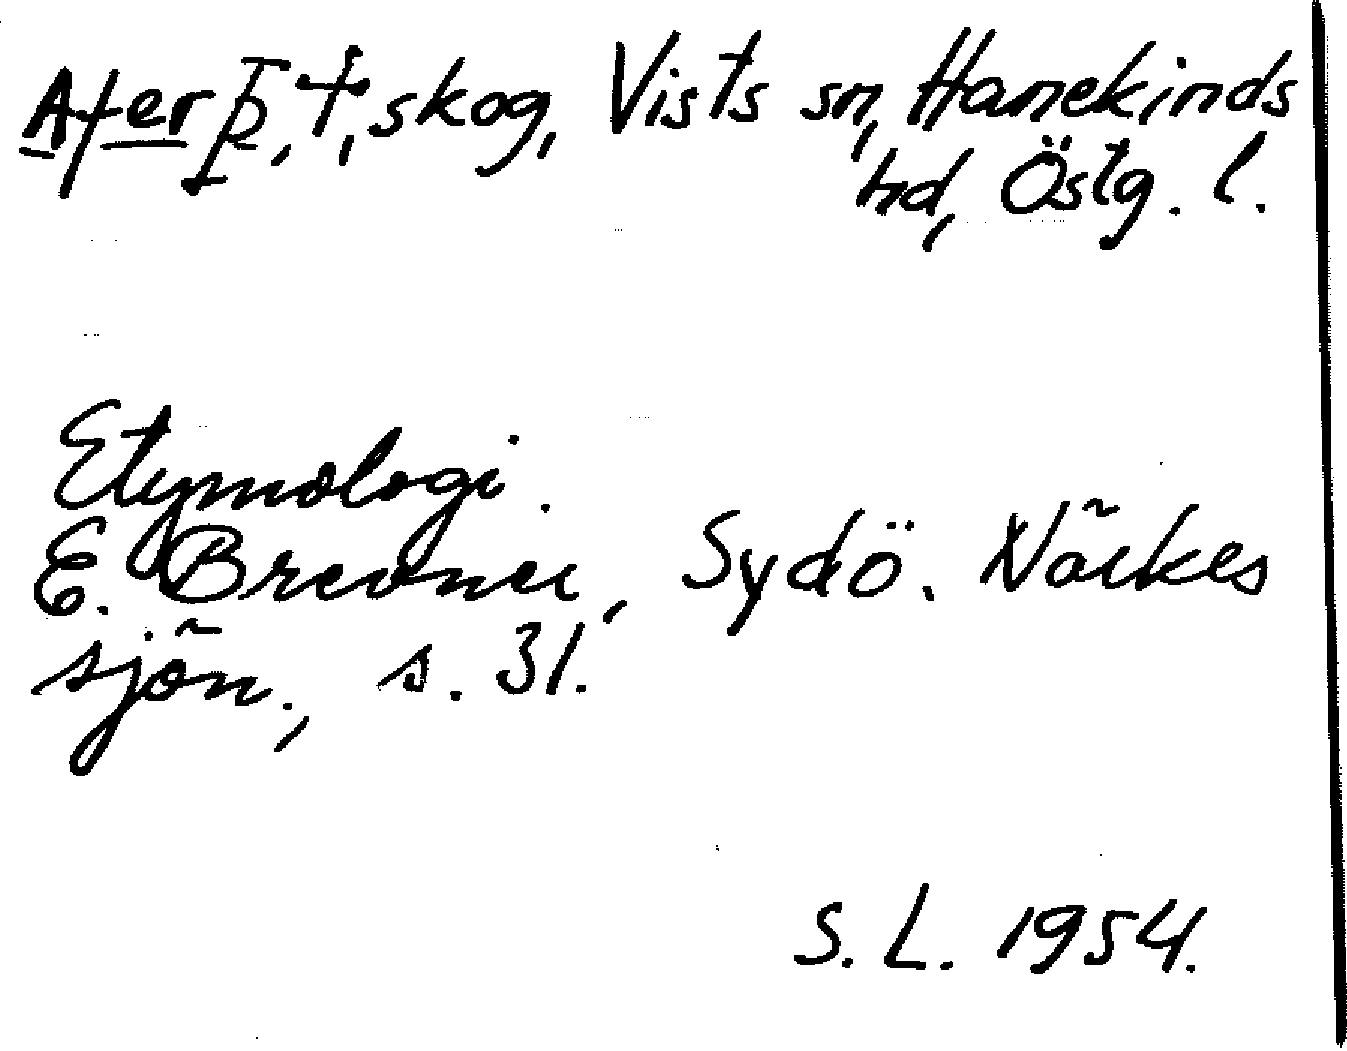 Afer þ, †, skog, Vists sn, Hanekinds
hd, Östg. l.
Etymologi.
E. Brevner, Sydö. Närkes
sjön., s. 31.
S. L. 1954.